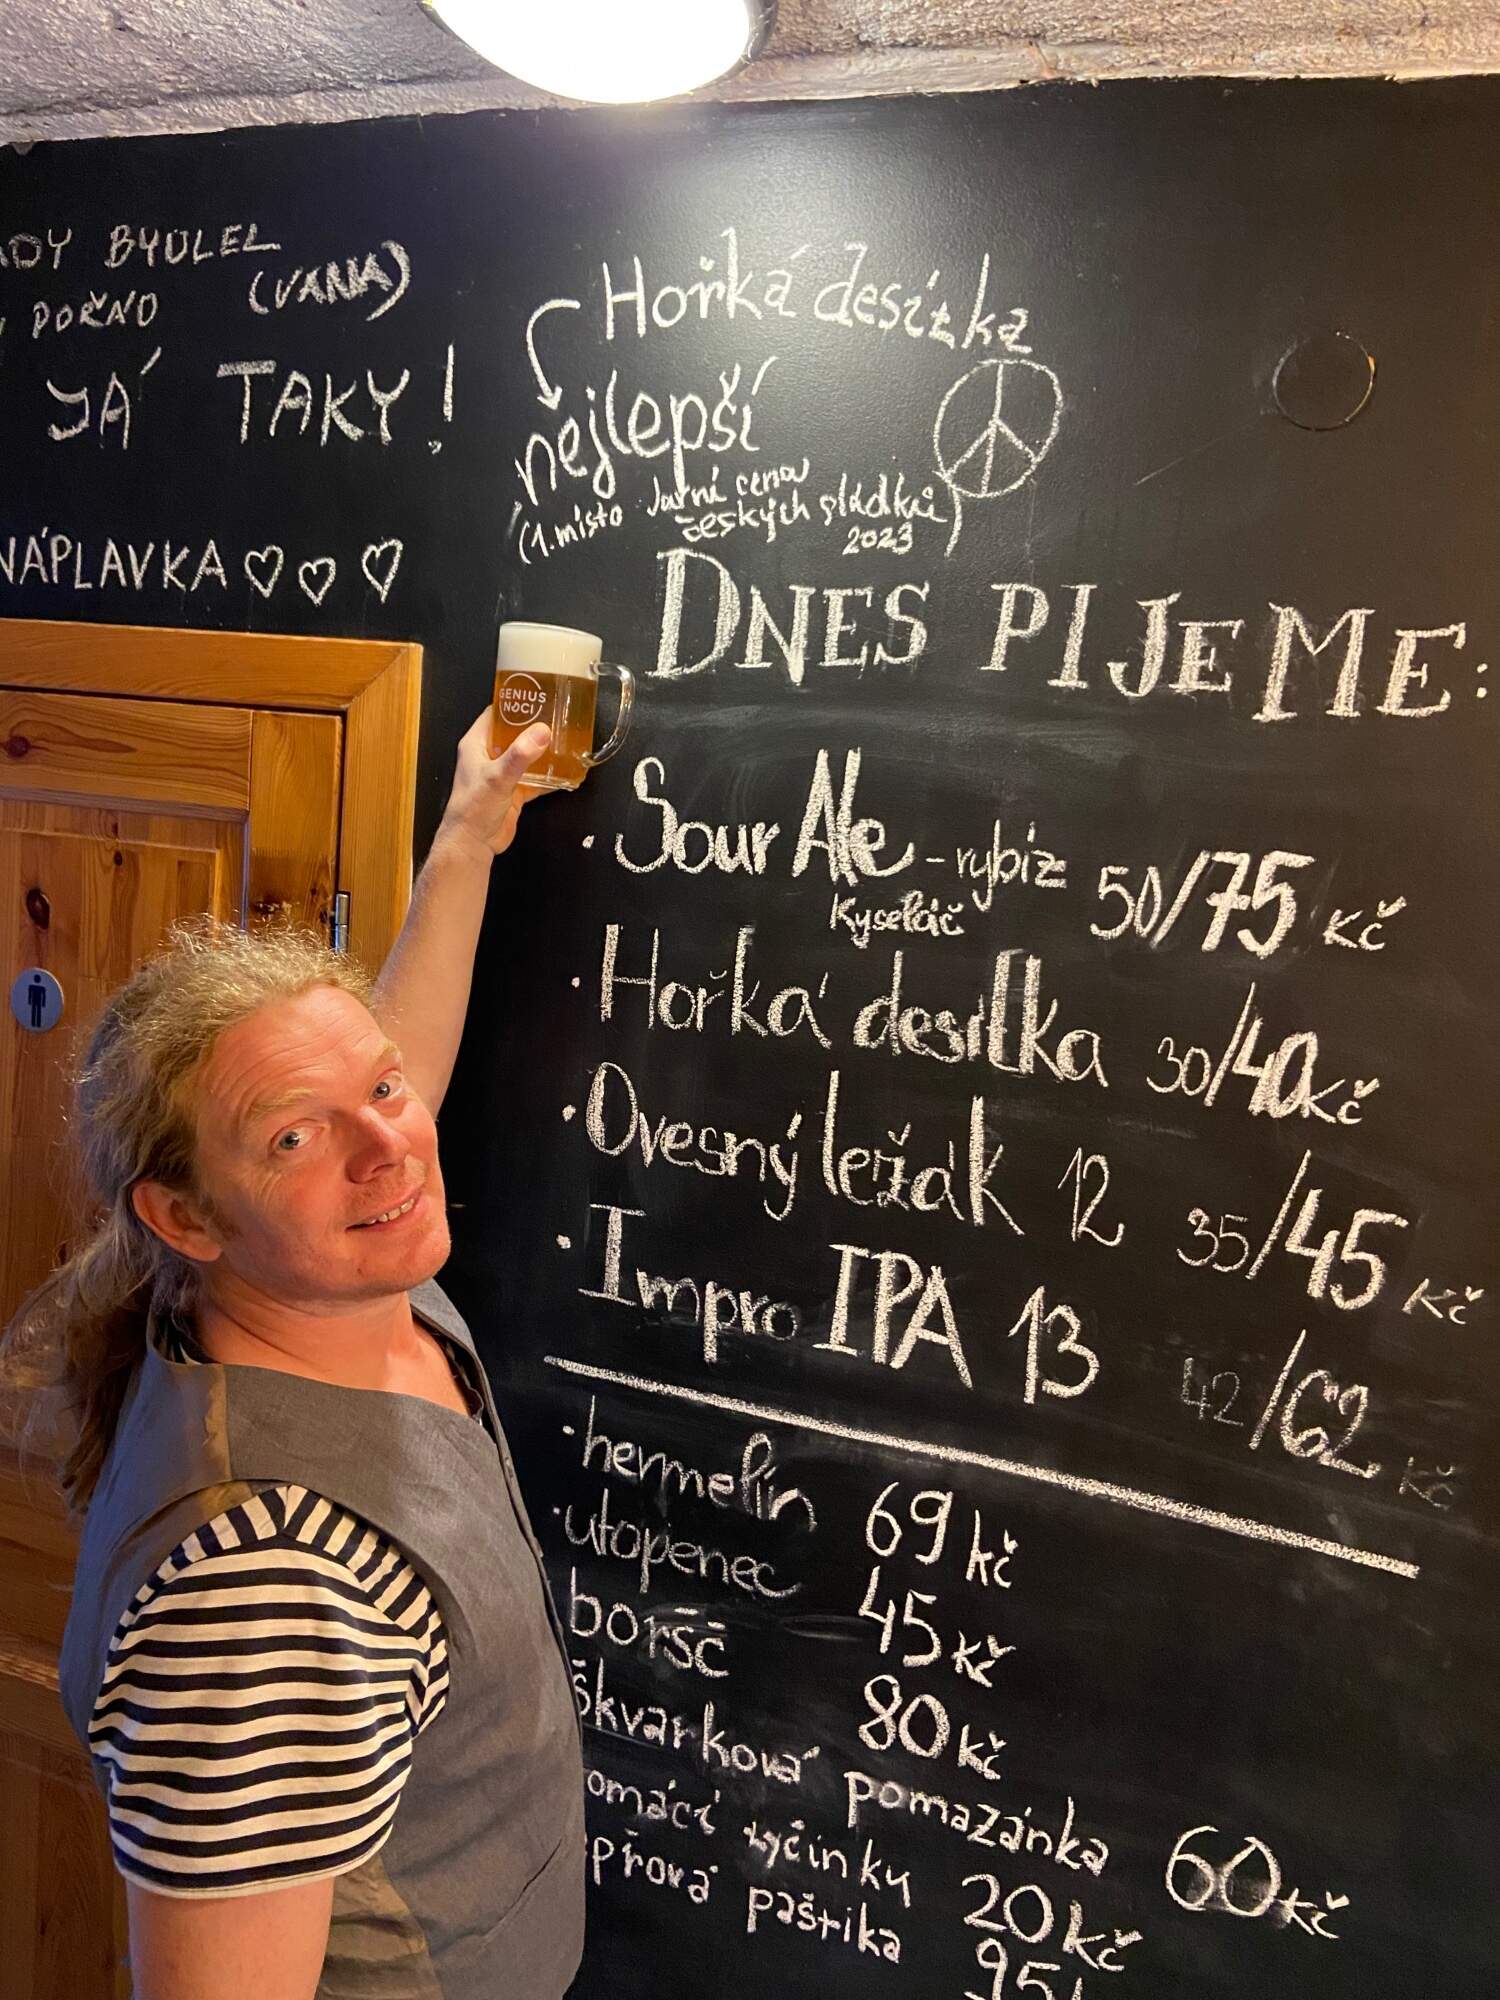 BYULEL
POŘNO (VÁŇA)
JÁ TAKY!
NÁPLAVKA
Hořká desítka
nejlepší
(1. místo Jarní cena
českých sládků)
2023
DNES PIJEME:
GENIUS
NOCI
· Sour Ale - rybíz 50/75 Kč
Kyseláč
· Hořká desítka 30/40 Kč
· Ovesný ležák 12 35/45 Kč
· Impro IPA 13 42/62 Kč
· hermelín 69 kč
· utopenec 45 kč
boršč 80 kč
škvarková pomazánka 60 kč
omácí tyčinky 20 kč
paštika 95